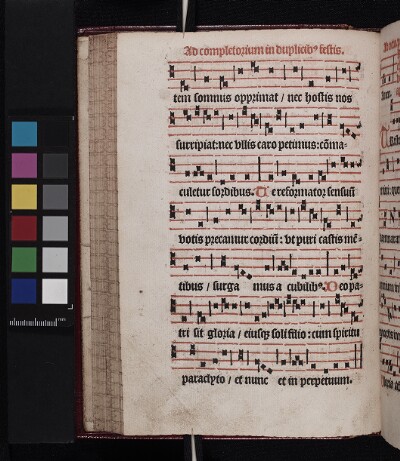 Ad completorium in duplicibꝰ festis.
tem somnus opprimat / nec hostis nos
surripiat: nec vllis caro petimus: cōma-
culetur sordibus. Te reformator sensuū
votis precamur cordiū: vt puri castis mē-
tibus / surga mus a cubilibꝰ. Deo pa-
tri sit gloria / eiusqꝫ soli filio: cum spiritu
paraclyto / et nunc et in perpetuum.